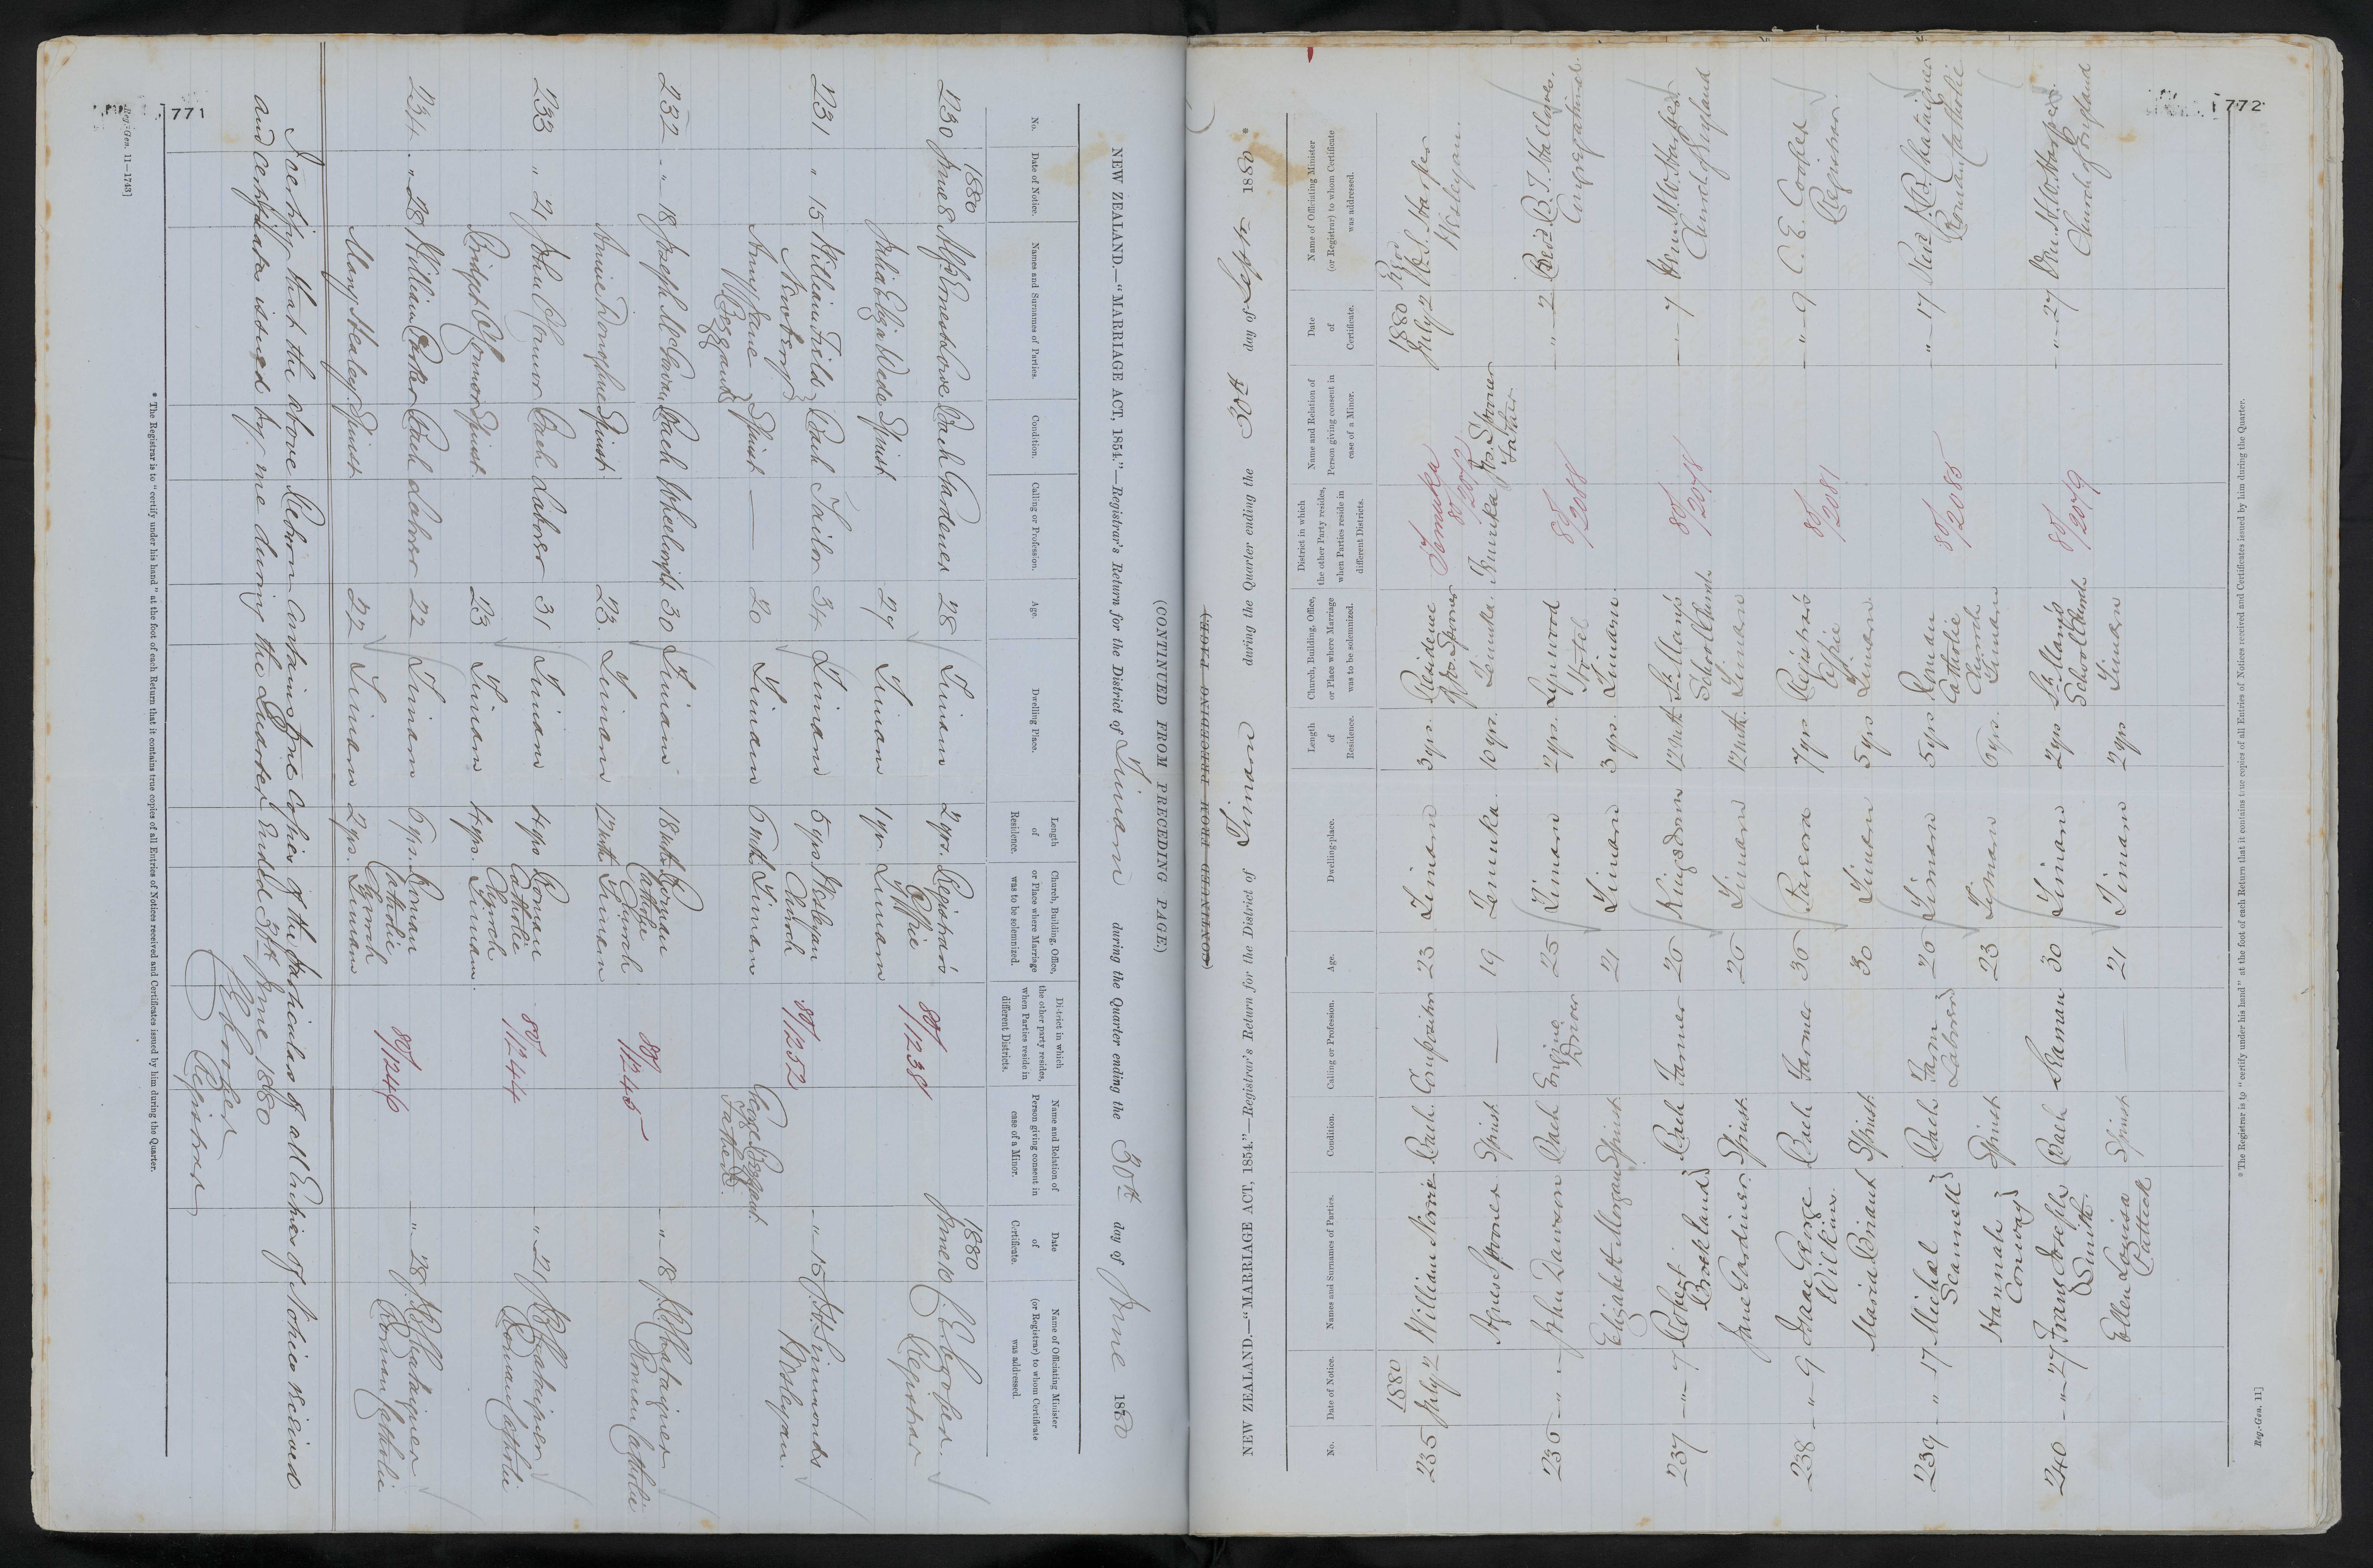 771
(CONTINUED FROM PRECEDING PAGE.)
NEW ZEALAND.—"MARRIAGE ACT, 1854."—Registrar's Return for the District of Timaru during the Quarter ending the 30th day of June 1880
No. Date of Notice. Names and Surnames of Parties. Condition. Calling or Profession. Age. Dwelling Place. Length of Residence. Church, Building, Office, or Place where Marriage was to be solemnized. District in which the other party resides, when Parties reside in different Districts. Name and Relation of Person giving consent in case of a Minor. Date of Certificate. Name of Officiating Minister (or Registrar) to whom Certificate was addressed.
1880 1880
230 June 8 Alfd Ernest Lowe Bach Gardener 28 Timaru 2 yrs. Registrar's Office 80/1238 June 10 C. E. Cooper Registrar
Julia Eliza Wede Spinst 27 Timaru 1 yr. Timaru
231 " 15 William Field Newberry Bach Tailor 34 Timaru 5 yrs Wesleyan Church 80/1252 - " - 15 Simmonds Wesleyan.
Amy Jane Beggand Spinst — 20 Timaru 6 mth Timaru George Beggand. Father.
232 - " - 18 Joseph McGavan Bach Wheelwright 30 Timaru 18 mth Roman Catholic Church 80/1245 - " - 18 J. B. Chataigner Roman Catholic
Annie Donoghue Spinst 23. Timaru 12 mth Timaru
233 " 21 John O'Connor Bach Laborer 31 Timaru 4 yrs Roman Catholic Church 80/1244 - " - 21 J. B. Chataigner Roman Catholic
Bridget O'Connor Spinst 23 Timaru 4 yrs. Timaru.
234 - " - 28 William Bach Laborer 22 Timaru 6 yrs. Roman Catholic Church 80/1246 - " - 28 J. B. Chataigner Roman Catholic
Mary Healey Spinst 22 Timaru 2 yrs. Timaru
I certify that the above Return contains true copies of the particulars of all Entries of Notices received
and certificates issued by me during the Quarter Ended 30th June 1880
C E Cooper
Registrar
* The Registrar is to "certify under his hand" at the foot of each Return that it contains true copies of all Entries of Notices received and Certificates issued by him during the Quarter.
Reg.-Gen. 11—1743]
772
(CONTINUED FROM PRECEDING PAGE.)
NEW ZEALAND.—"MARRIAGE ACT, 1854."—Registrar's Return for the District of Timaru during the Quarter ending the 30th day of Septr 1880.
No. Date of Notice. Names and Surnames of Parties. Condition. Calling or Profession. Age. Dwelling-place. Length of Residence. Church, Building, Office, or Place where Marriage was to be solemnized. District in which the other Party resides, when Parties reside in different Districts. Name and Relation of Person giving consent in case of a Minor. Date of Certificate. Name of Officiating Minister (or Registrar) to whom Certificate was addressed.
1880 1880
235 July 2 William Norrie Bach. Compositor 23 Timaru 3 yrs. Residence Spooner Temuka July 2 Rev W. S. Harper Wesleyan.
Agnes Spooner Spinst — 19 Temuka. 10 yrs. Temuka. Temuka Spooner Father
236 - " - " John Dawson Bach Engine Driver 25 Timaru 2 yrs. Hotel 80/2088 - " - 2 Revd B. J. Congregational.
Elizabeth Morgan Spinst 21 Timaru 3 yrs. Timaru.
237 - " - 7 Robert Brookland Bach Farmer 26 Kingsdown 12 mth St. Mary's School Church 80/2078 - " - 7 Ven. H. W. Harper Church of England
Jane Gardiner Spinst. 26 Timaru 12 mth. Timaru
238 - " - 9 Isaac George Wilkins Bach Farmer 36 Pareora 7 yrs Registrar's Office 80/2081 - " - 9 C. E. Cooper Registrar.
Maria Briant Spinst. 30 Timaru 5 yrs Timaru.
239 - " - 17 Michael Scannell Bach Farm Laborer 26 Timaru 5 yrs Roman Catholic Church 80/2085 " - 17 Revd J. B. Chataigner Roman Catholic
Hannah Conway Spinst. 23 Timaru 6 yrs. Timaru
240 - " - 27 Frans Joseph Smith Bach Seaman 30 Timaru 2 yrs St. Mary's School Church 80/2079 - " - 27 Ven. H. W. Harper. Church of England
Ellen Louisa Spinst — 21 Timaru 2 yrs Timaru
* The Registrar is to "certify under his hand" at the foot of each Return that it contains true copies of all Entries of Notices received and Certificates issued by him during the Quarter.
Reg.-Gen. 11]